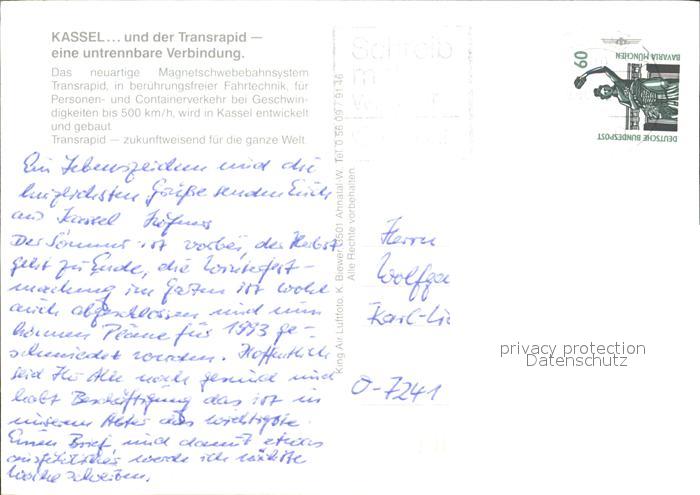 KASSEL... und der Transrapid —
eine untrennbare Verbindung.
Das neuartige Magnetschwebebahnsystem
Transrapid, in berührungsfreier Fahrtechnik, für
Personen- und Containerverkehr bei Geschwin-
digkeiten bis 500 km/h, wird in Kassel entwickelt
und gebaut.
Transrapid — zukunftweisend für die ganze Welt
Ein Lebenszeichen und die
herzlichsten Grüße senden Euch
aus Kassel
Der Sommer ist vorbei, der Herbst
geht zu Ende, die Winterfest-
machung im Garten ist wohl
auch abgeschlossen und nun
können Pläne für 1993 ge-
schmiedet werden. Hoffentlich
seid Ihr Alle noch gesund und
habt Beschäftigung das ist in
unserem Alter das wichtigste.
Einen Brief und damit etwas
ausführliches werde ich nächste
Woche schreiben.
King Air Luftfoto, K. Biewer 3501 Annatal-W. Tel. 0 56 09/7 91 46
Alle Rechte vorbehalten.
Schreib
m
60
BAVARIA MÜNCHEN
DEUTSCHE BUNDESPOST
Herrn
Wolfga
Karl-Li
O-7241
privacy protection
Datenschutz